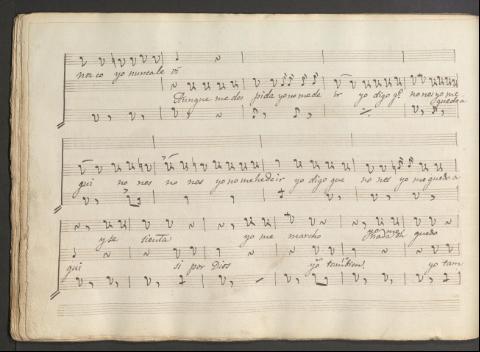 nozco yo nunca le vi
Aunque me des pida yo no me de ir yo digo q.e no nos yo me quedo a
qui no nos no nos yo no me he de ir yo digo que no nos yo me quedo a
y se tienta yo me marcho quedo
qui si por Dios yo tambien yo tam